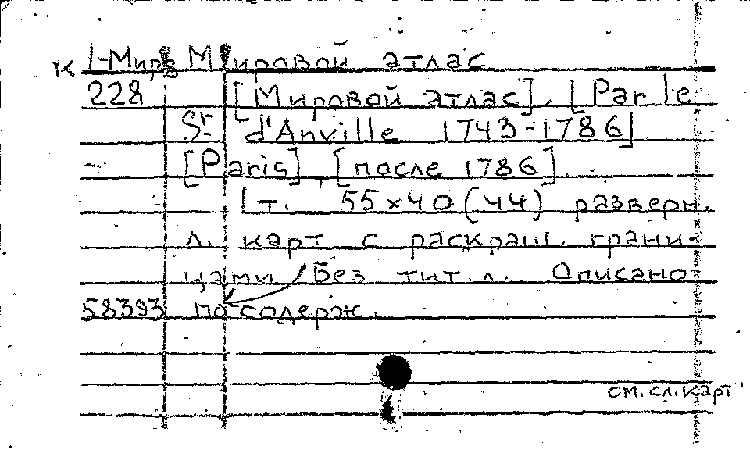 К 1-Мира Мировой атлас
228 [Мировой атлас]. [Par le
Sr d'Anville 1743-1786]
[Paris], [после 1786].
1 т. 55×40 (44) разверн.
л. карт с раскраш. грани-
цами. Без тит. л. Описано
58393 по содерж.
см. сл. карт